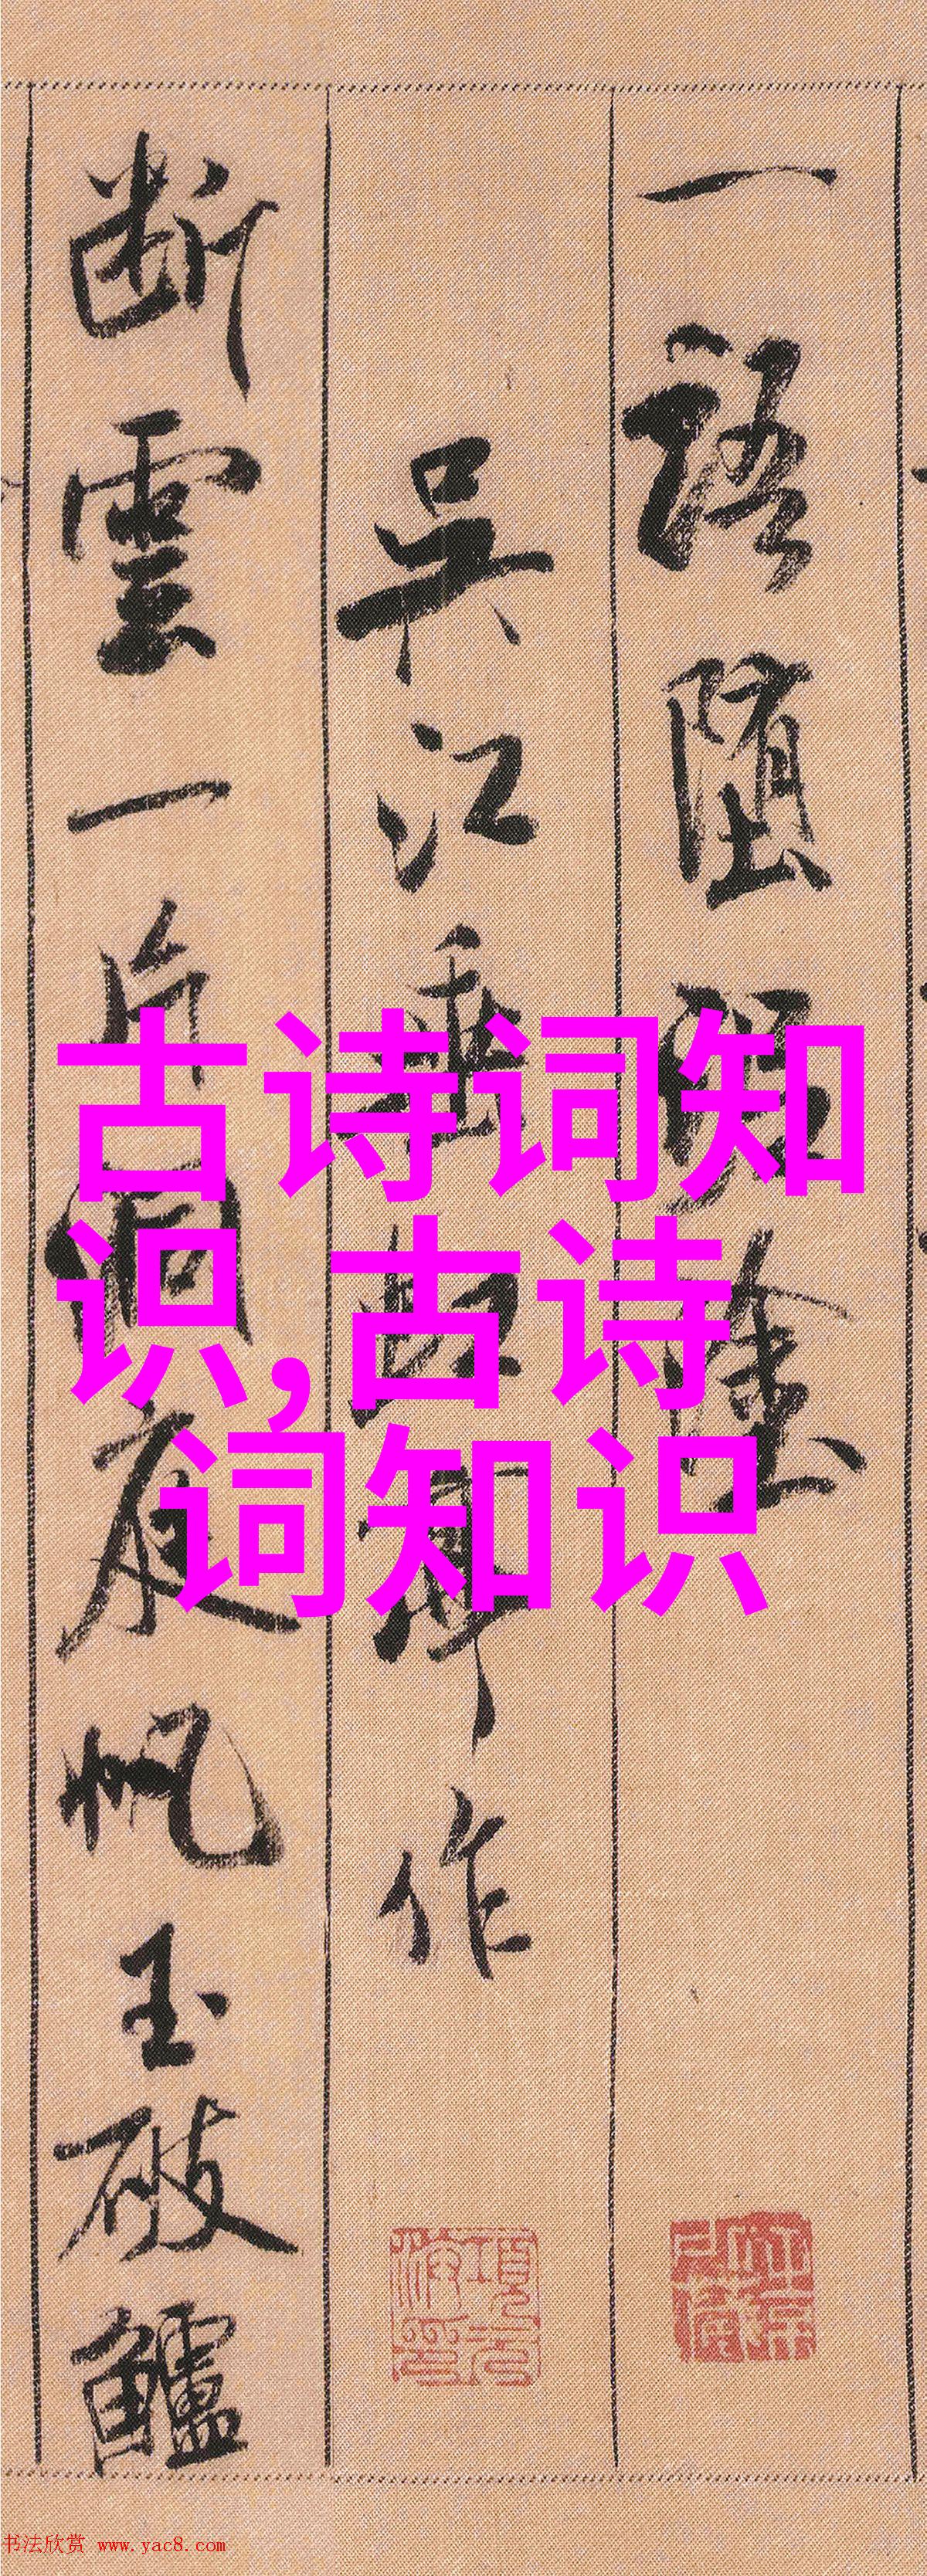 一語墮泥塗
吳江垂虹亭作
斷雲一片洞庭帆玉破鱸
古诗词知
识,古诗
词知识
书法欣赏 www.yac8.com